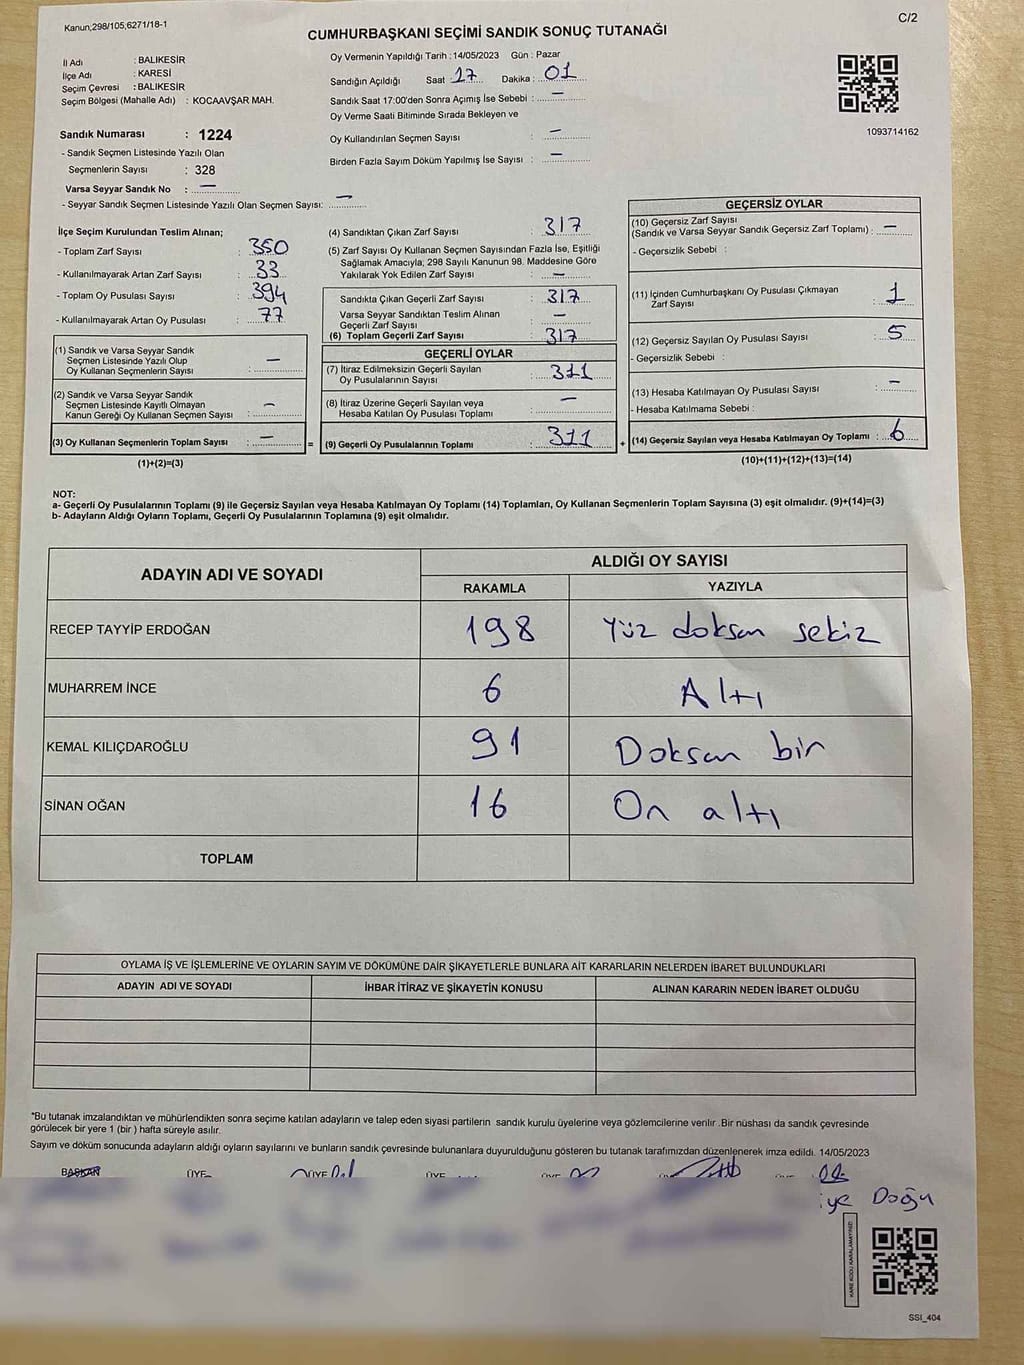 Kanun;298/105,6271/18-1
C/2
CUMHURBAŞKANI SEÇİMİ SANDIK SONUÇ TUTANAĞI
İl Adı : BALIKESİR
İlçe Adı : KARESİ
Seçim Çevresi : BALIKESİR
Seçim Bölgesi (Mahalle Adı) : KOCAAVŞAR MAH.
Sandık Numarası : 1224
- Sandık Seçmen Listesinde Yazılı Olan
Seçmenlerin Sayısı : 328
Varsa Seyyar Sandık No : —
- Seyyar Sandık Seçmen Listesinde Yazılı Olan Seçmen Sayısı: —
Oy Vermenin Yapıldığı Tarih : 14/05/2023 Gün : Pazar
Sandığın Açıldığı Saat : 17 Dakika : 01
Sandık Saat 17:00'den Sonra Açımış İse Sebebi : —
Oy Verme Saati Bitiminde Sırada Bekleyen ve
Oy Kullandırılan Seçmen Sayısı : —
Birden Fazla Sayım Döküm Yapılmış İse Sayısı : —
1093714162
İlçe Seçim Kurulundan Teslim Alınan;
- Toplam Zarf Sayısı : 350
- Kullanılmayarak Artan Zarf Sayısı : 33
- Toplam Oy Pusulası Sayısı : 394
- Kullanılmayarak Artan Oy Pusulası : 77
(1) Sandık ve Varsa Seyyar Sandık
Seçmen Listesinde Yazılı Olup
Oy Kullanan Seçmenlerin Sayısı : —
(2) Sandık ve Varsa Seyyar Sandık
Seçmen Listesinde Kayıtlı Olmayan
Kanun Gereği Oy Kullanan Seçmen Sayısı : —
(3) Oy Kullanan Seçmenlerin Toplam Sayısı : — =
(1)+(2)=(3)
(4) Sandıktan Çıkan Zarf Sayısı : 317
(5) Zarf Sayısı Oy Kullanan Seçmen Sayısından Fazla İse, Eşitliği
Sağlamak Amacıyla; 298 Sayılı Kanunun 98. Maddesine Göre
Yakılarak Yok Edilen Zarf Sayısı : —
Sandıkta Çıkan Geçerli Zarf Sayısı : 317
Varsa Seyyar Sandıktan Teslim Alınan
Geçerli Zarf Sayısı : —
(6) Toplam Geçerli Zarf Sayısı : 317
GEÇERLİ OYLAR
(7) İtiraz Edilmeksizin Geçerli Sayılan
Oy Pusulalarının Sayısı : 311
(8) İtiraz Üzerine Geçerli Sayılan veya
Hesaba Katılan Oy Pusulası Toplamı : —
(9) Geçerli Oy Pusulalarının Toplamı : 311 +
GEÇERSİZ OYLAR
(10) Geçersiz Zarf Sayısı
(Sandık ve Varsa Seyyar Sandık Geçersiz Zarf Toplamı) : —
- Geçersizlik Sebebi :
(11) İçinden Cumhurbaşkanı Oy Pusulası Çıkmayan
Zarf Sayısı : 1
(12) Geçersiz Sayılan Oy Pusulası Sayısı : 5
- Geçersizlik Sebebi :
(13) Hesaba Katılmayan Oy Pusulası Sayısı : —
- Hesaba Katılmama Sebebi :
(14) Geçersiz Sayılan veya Hesaba Katılmayan Oy Toplamı : 6
(10)+(11)+(12)+(13)=(14)
NOT:
a- Geçerli Oy Pusulalarının Toplamı (9) ile Geçersiz Sayılan veya Hesaba Katılmayan Oy Toplamı (14) Toplamları, Oy Kullanan Seçmenlerin Toplam Sayısına (3) eşit olmalıdır. (9)+(14)=(3)
b- Adayların Aldığı Oyların Toplamı, Geçerli Oy Pusulalarının Toplamına (9) eşit olmalıdır.
ADAYIN ADI VE SOYADI ALDIĞI OY SAYISI
RAKAMLA YAZIYLA
RECEP TAYYİP ERDOĞAN 198 Yüz doksan sekiz
MUHARREM İNCE 6 Altı
KEMAL KILIÇDAROĞLU 91 Doksan bir
SİNAN OĞAN 16 On altı
TOPLAM
OYLAMA İŞ VE İŞLEMLERİNE VE OYLARIN SAYIM VE DÖKÜMÜNE DAİR ŞİKAYETLERLE BUNLARA AİT KARARLARIN NELERDEN İBARET BULUNDUKLARI
ADAYIN ADI VE SOYADI İHBAR İTİRAZ VE ŞİKAYETİN KONUSU ALINAN KARARIN NEDEN İBARET OLDUĞU
*Bu tutanak imzalandıktan ve mühürlendikten sonra seçime katılan adayların ve talep eden siyasi partilerin sandık kurulu üyelerine veya gözlemcilerine verilir .Bir nüshası da sandık çevresinde
görülecek bir yere 1 (bir ) hafta süreyle asılır.
Sayım ve döküm sonucunda adayların aldığı oyların sayılarını ve bunların sandık çevresinde bulunanlara duyurulduğunu gösteren bu tutanak tarafımızdan düzenlenerek imza edildi. 14/05/2023
BAŞKAN ÜYE ÜYE ÜYE
Doğu
KARE KODU KARALAMAYINIZ!
SSİ_404